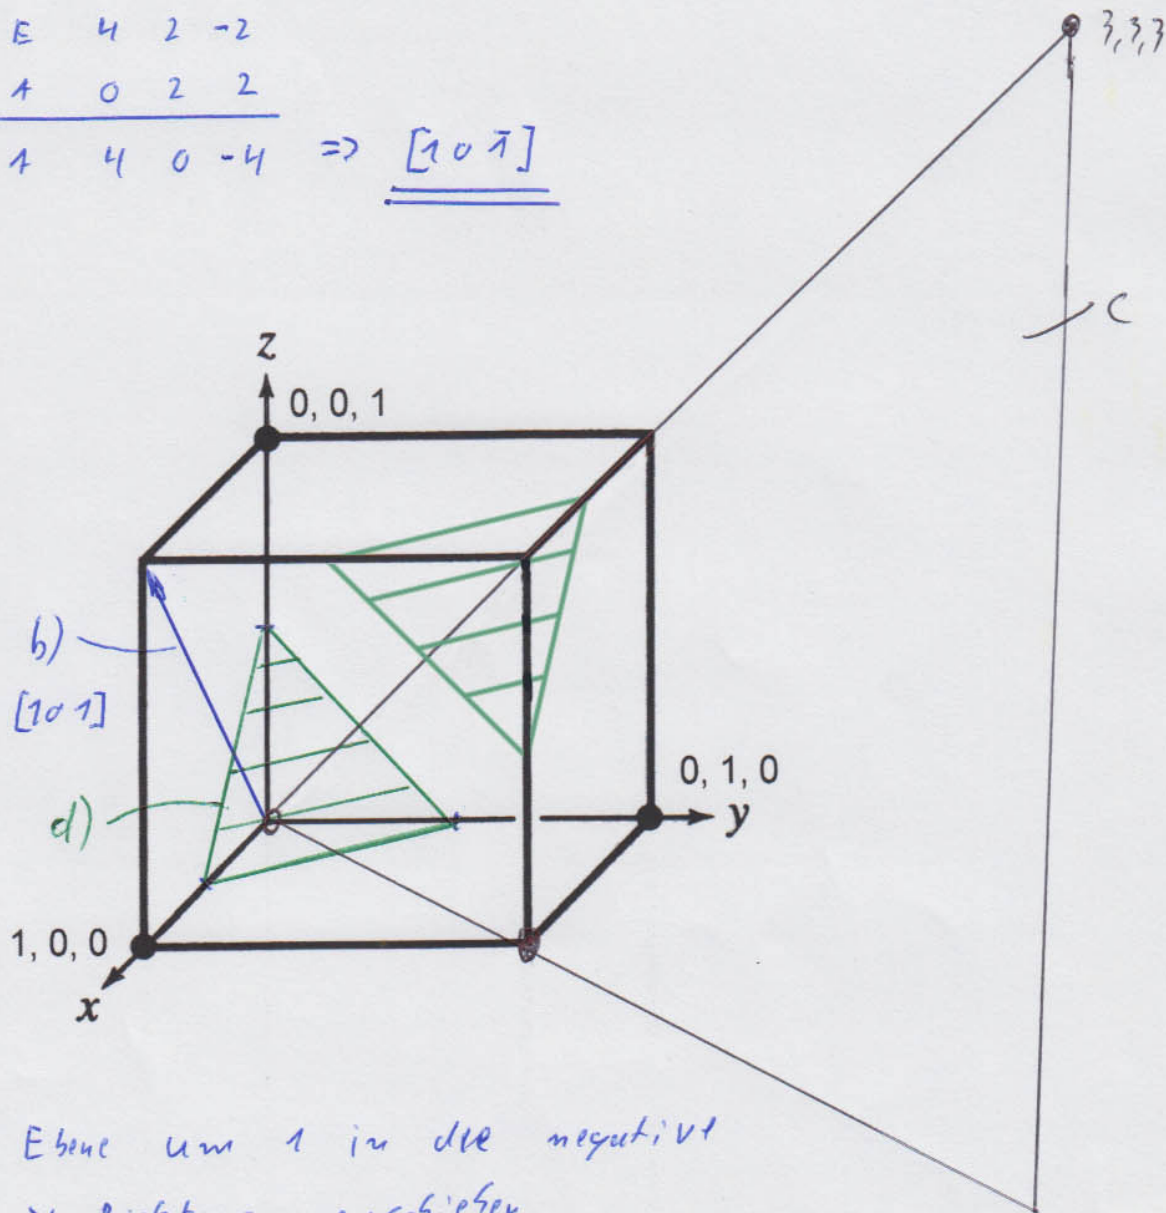 E 4 2 -2
A 0 2 2
1 4 0 -4 => [1 0 1̄]
3,3,3
c
z
0, 0, 1
b)
[101]
d)
0, 1, 0
y
1, 0, 0
x
Ebene um 1 in die negative